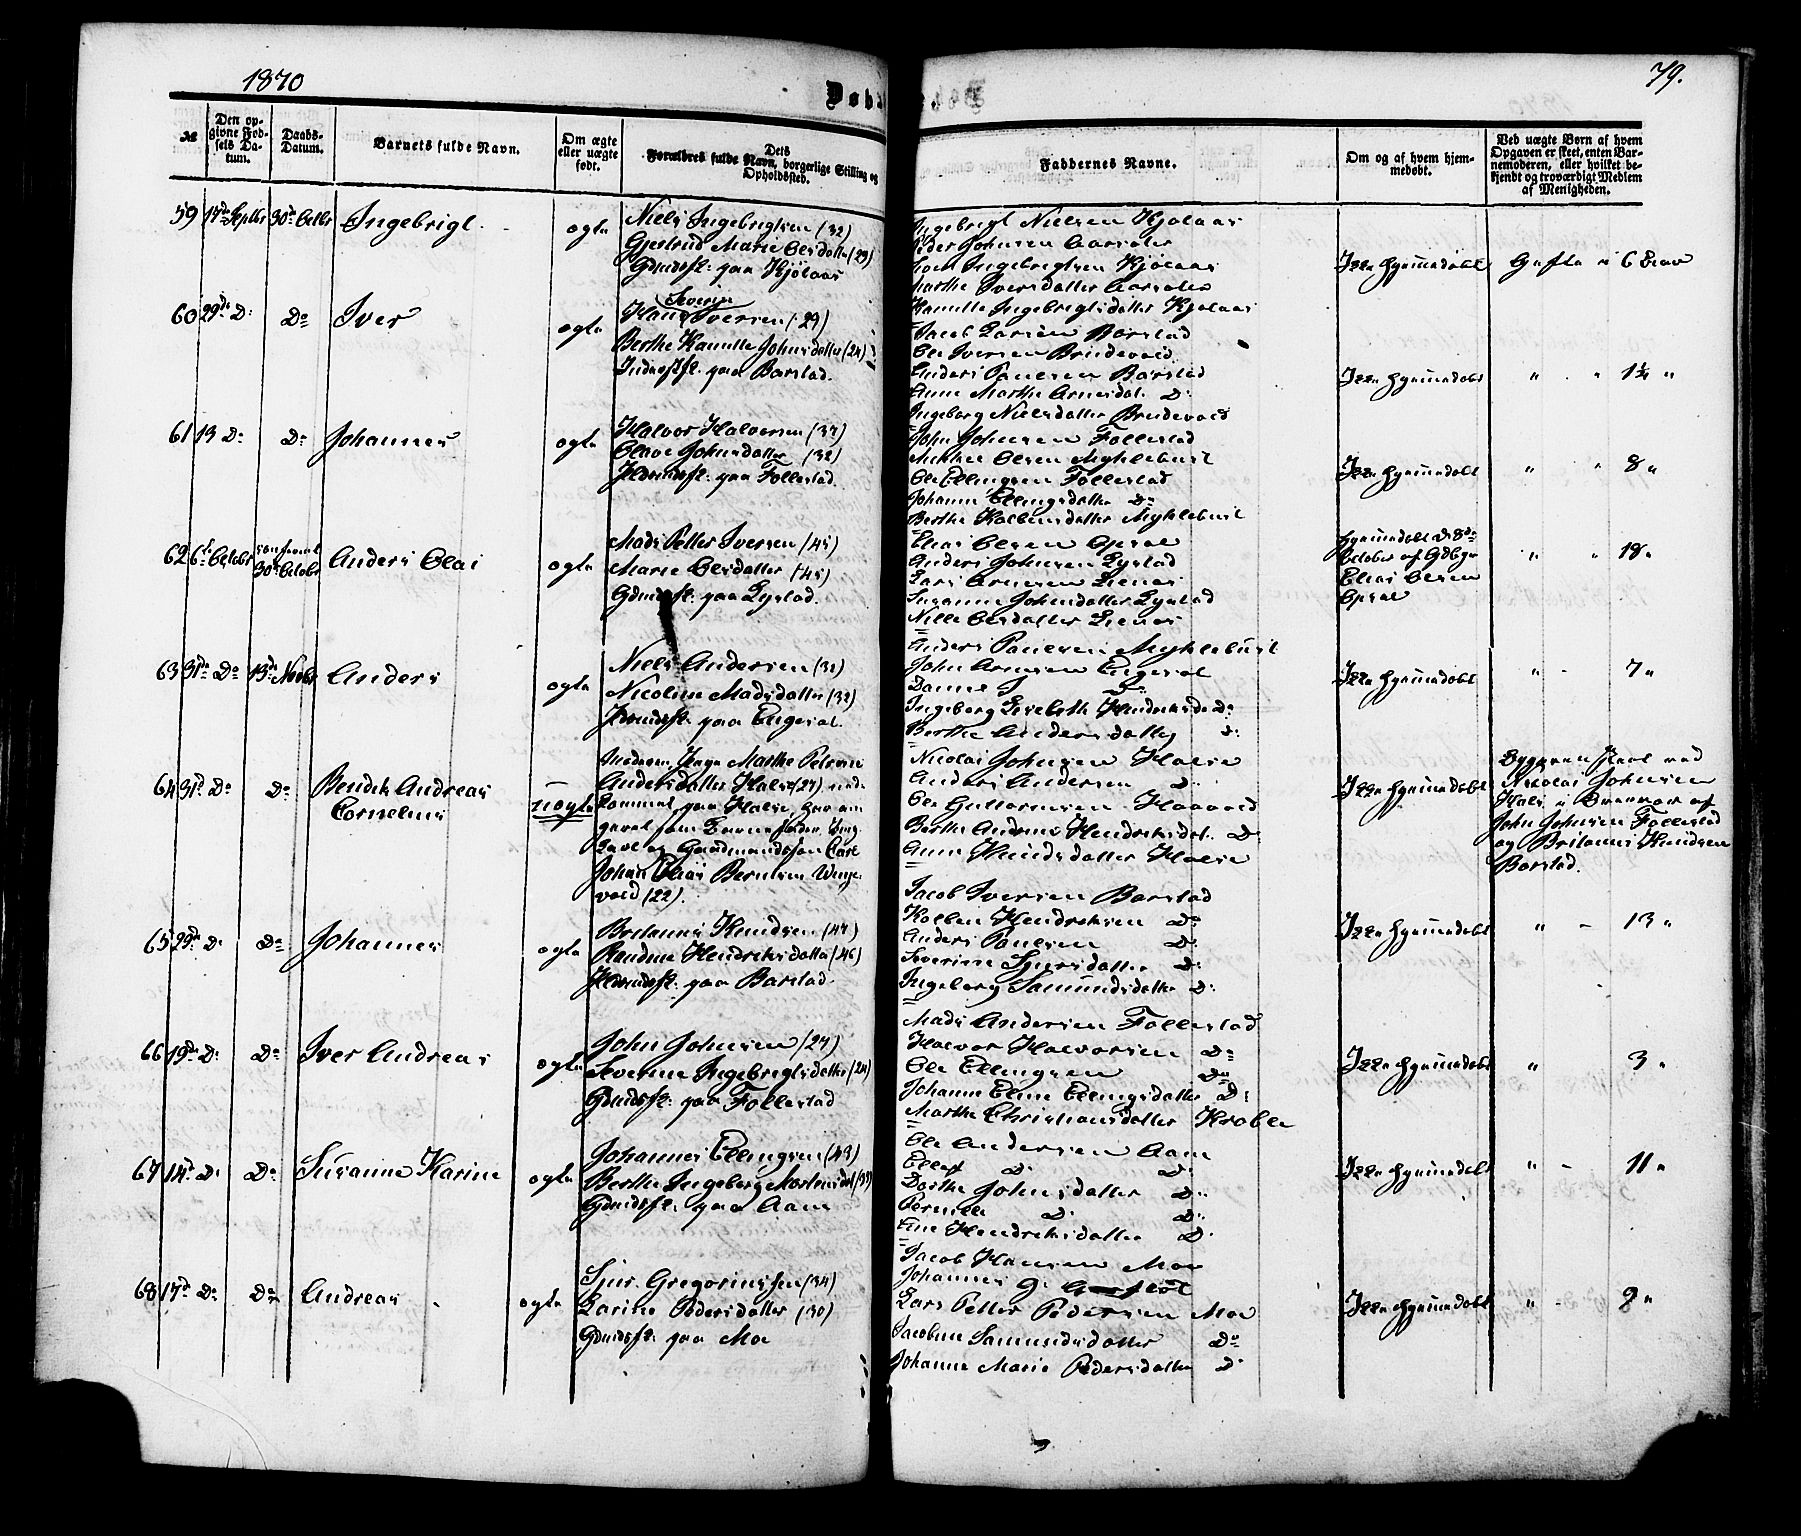 1870
Døb
79.
№
Den op-
givne Fød-
sels Da-
tum.
Daabs-
Datum.
Barnets fulde Navn.
Om ægte
eller uægte
født.
Dets
Forældres fulde Navn, borgerlige Stilling og
Opholdssted.
Faddernes Navne.
Om og af hvem hjem-
medøbt.
Ved uægte Børn af hvem
Opgaven er skeet, enten Bar-
nemoderen, eller hvilket be-
kjendt og troværdigt Medlem
af Menigheden.
59 17de Septbr 30te Octbr Ingebrigt ægte
Niels Ingebrigtsen (32)
Gjertrud Marie Olsdatter (29)
Gdmdsf: paa Kjølaas
Ingebrigt Nielsen Kjølaas
Peder Johnsen Aarsæter
Ingebrigtsen Kjølaas
Marthe Iversdatter Aarsæter
Kanutte Ingebrigtsdatter Kjølaas
Ikke hjemmedøbt
6
60 29de D: Do Iver ægte
Severin
Hans Iversen (29)
Berthe Kanutte Johnsdatter (24)
Inderstf: paa Barstad.
Jacob Larsen Barstad
Ole Iversen Brudevold
Anders Paulsen Barstad
Anne Marthe Arnesdat. D:
Ingeborg Nielsdatter Brudevold
Ikke hjemmedøbt
" " 1¼ "
61 13 D: D: Johannes ægte
Halvor Halvorsen (37)
Olave Johnsdatter (32)
Huusmdsf: paa Follestad.
John Johnsen Follestad
Olsen Myklebust
Ole Ellingsen Follestad
Johanne Ellingsdatter Do
Berthe Kolbensdatter Myklebust
Ikke hjemmedøbt
" " 8 "
62 6te Octobr 30te Octobr Anders Olai ægte
Mads Petter Iversen (45)
Marie Olsdatter (45)
Gdmdsf: paa Lystad.
Elias Olsen Opsal
Anders Johnsen Lystad
Lars Arnesen Lienes
Susanne Johnsdatter Lystad
Nille Olsdatter Lienes
hjemmedøbt d: 8de
October af
Elias Olsen
Opsal
" " 18 "
63 31te Do 13de Novbr Anders ægte
Niels Andersen (32)
Nicoline Madsdatter (32)
paa Engeset.
Anders Paulsen Myklebust
John Arnesen Engeset
Ingeborg Lisebeth Hendriksd. D:
Berthe Andersdatter D:
Ikke hjemmedøbt
" - 7 "
64 31te Do D: Bendik Andreas
Cornelius
uægte
Pige Marthe Petrine
Andersdatter Halse (27)
paa Halse, har an-
givet som Barnefader Ung-
karl og Gaardmandssøn Carl
Johan Elias Berntsen Vinje-
vold (22).
Nicolai Johnsen Halse
Anders Andersen D:
Ole Guttormsen Haavold
Berthe Andrine Hendriksdat. D:
Anne Knudsdatter Halse
Ikke hjemmedøbt
Nicolai Johnsen
Halse af
John Johnsen Follestad
og Britanus Knudsen
Barstad.
65 29de D: Do Johannes ægte
Britanus Knudsen (47)
Randine Hendriksdatter (46)
paa Barstad.
Jacob Iversen Barstad
Kolben Hendriksen Do
Anders Paulsen D:
Severine Sjursdatter D:
Ingeborg Samundsdatter D:
Ikke hjemmedøbt
" - 13 "
66 19de D: Do Iver Andreas ægte
John Johnsen (27)
Severine Ingebrigtsdatter (24)
Gdmdsf: paa Follestad
Mads Andersen Follestad
Halvor Halvorsen Do
Ole Ellingsen Do
Johanne Eline Ellingsdatter D:
Marthe Christiansdatter Krøble
Ikke hjemmedøbt
" 3 "
67 14de D: Do Susanne Karine ægte
Johannes Ellingsen (43)
Berthe Ingeborg Mortensdat
Gdmdsf: paa Aam
Ole Andersen Aam
Ellef D: D:
Dorthe Johnsdatter D:
Pernille D: D:
Ane Hendriksdatter D:
Ikke hjemmedøbt
" - 11 "
68 17de Do Do Andreas ægte
Sjur Gregoriussen (34)
Larine Pedersdatter (30)
Gdmdsf: paa Moe
Jacob Hansen Moe
Johannes
Lars Petter Pedersen Moe
Jacobine Samundsdatter Do
Johanne Marie Pedersdatter D:
Ikke hjemmedøbt
" - 8 "